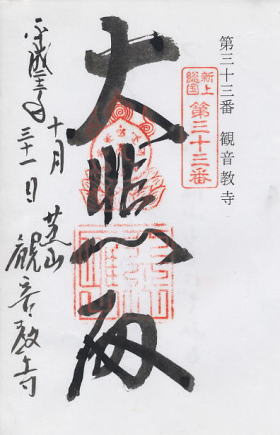 第三十三番 観音教寺
新上
総国
第三十三番
大悲殿
平成
十月
三十一日
芝山
観音教寺